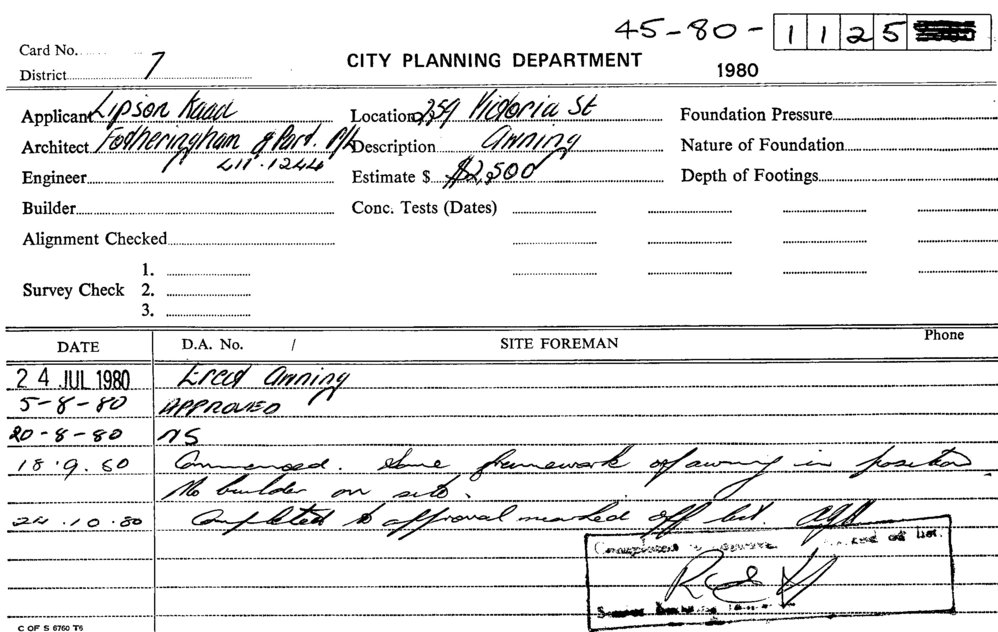 45-80- 1 1 2 5
Card No.
District 7
CITY PLANNING DEPARTMENT
1980
Applicant Lipson Kaad Location 259 Victoria St Foundation Pressure
Architect Fotheringham & Part. P/L Description Awning Nature of Foundation
211.1244
Engineer Estimate $ $2,500 Depth of Footings
Builder Conc. Tests (Dates)
Alignment Checked
1.
Survey Check 2.
3.
DATE D.A. No. / SITE FOREMAN Phone
24 JUL 1980 Erect Awning
5-8-80 APPROVED
20-8-80 NS
18.9.80 Commenced. Some framework of awning in position.
No builder on site.
24.10.80 Completed to approval marked off list.
Completed off list.
C OF S 6760 T6